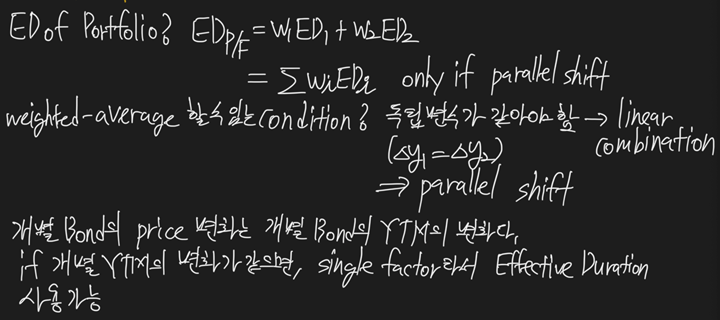 ED of Portfolio? ED_P/F = w₁ED₁ + w₂ED₂
= Σ wᵢEDᵢ only if parallel shift
weighted-average 할 수 있는 condition? 독립변수가 같아야 함 → linear combination
(Δy₁ = Δy₂)
⇒ parallel shift
개별 Bond의 price 변화는 개별 Bond의 YTM의 변화다.
if 개별 YTM의 변화가 같으면, single factor라서 Effective Duration
사용 가능